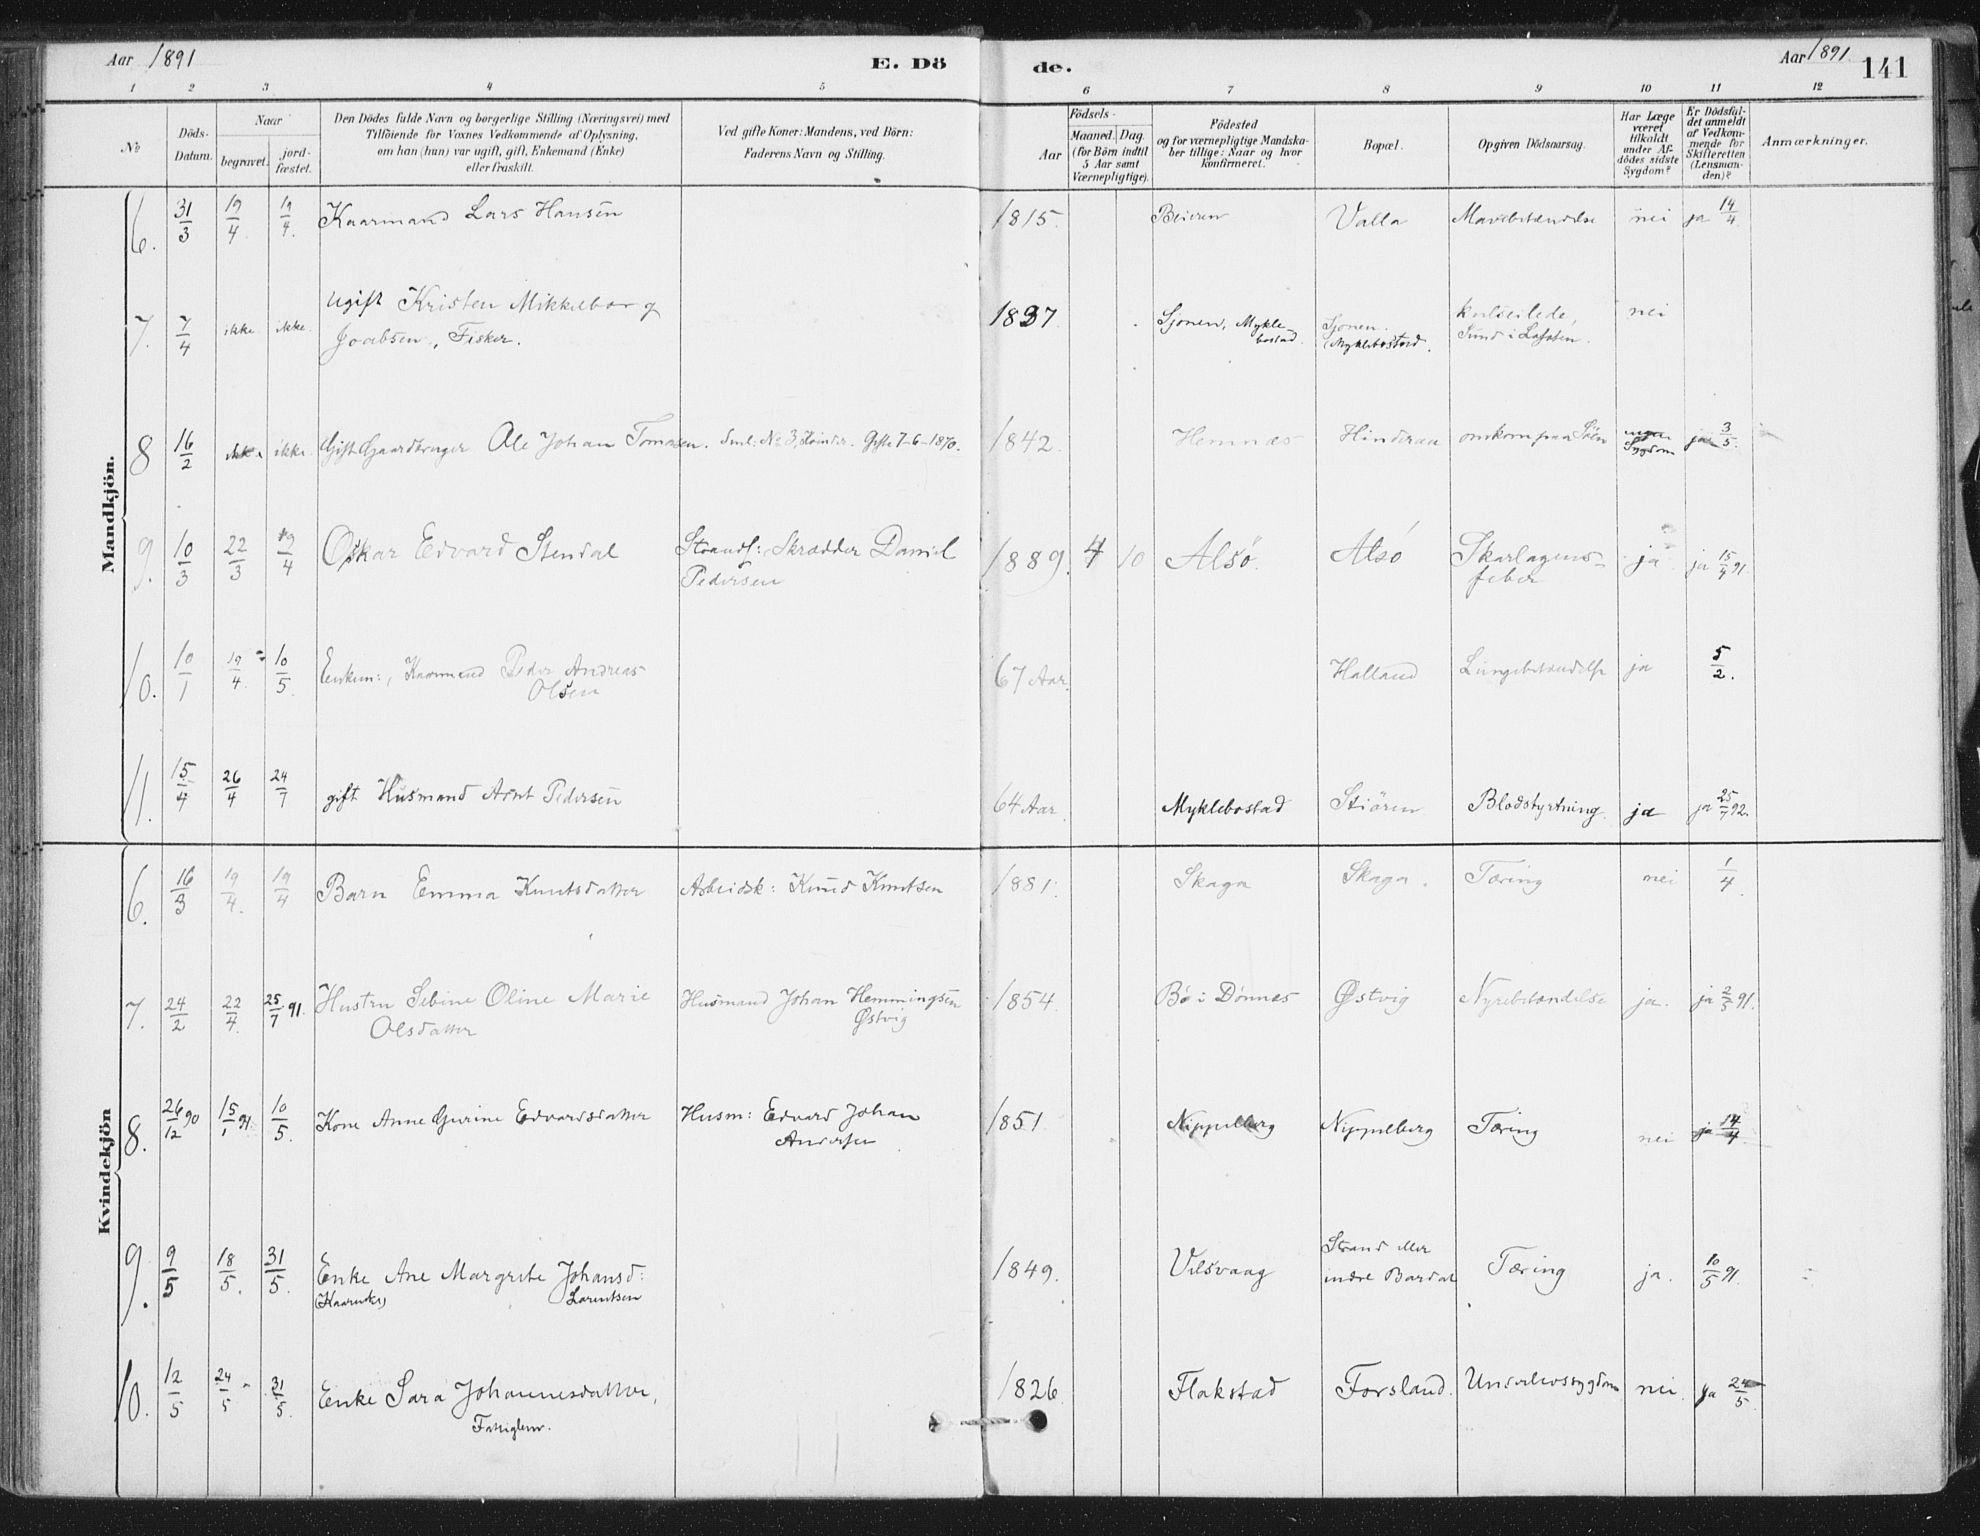 Aar 1891 E. Dö
de. Aar 1891. 141
1 2 3 4 5 6 7 8 9 10 11 12
№
Döds-Datum.
Naar
begravet. jord-fæstet.
Den Dödes fulde Navn og borgerlige Stilling (Næringsvei) med
Tilföiende for Voxnes Vedkommende af Oplysning,
om han (hun) var ugift, gift, Enkemand (Enke)
eller fraskilt.
Ved gifte Koner: Mandens, ved Börn:
Faderens Navn og Stilling.
Födsels-
Aar Maaned. Dag.
(for Börn indtil
5 Aar samt
Værnepligtige).
Födested
og for værnepligtige Mandska-
ber tillige: Naar og hvor
konfirmeret.
Bopæl.
Opgiven Dödsaarsag.
Har Læge
været
tilkaldt
under Af-
dödes sidste
Sygdom?
Er Dödsfal-
det anmeldt
af Vedkom-
mende for
Skifteretten
(Lensman-
den)?
Anmærkninger.
Mandkjön.
6. 31/3 19/4 19/4 Kaarmand Lars Hansen 1815. Beieren Valla Mavebetændelse nei ja 14/4
7. 7/4 ikke ikke ugift Kristen Mikkelborg
Joabsen, Fisker. 1837. Sjonen, Myklebostad. Sjonen. Myklebostad. kulseilede, Sund i Lofoten. nei
8 16/2 ikke ikke Gift Gaardbruger Ole Johan Tomasen. Gifte 7-6-1870. 1842. Hemnæs Hinderaa omkom paa Söen ingen Sygdom ja 3/5
9. 10/3 22/3 19/4 Oskar Edvard Stendal Strands: Skrædder Daniel
Pedersen 1889. 4 10 Alsö. Alsö Skarlagens-
feber ja ja 15/4 91.
10. 10/1 19/4 10/5 Enkem:, Kaarmand Peder Andreas
Olsen 67 Aar. Halland Lungebetændelse ja 5/2.
11. 15/4 26/4 24/7 gift Husmand Arnt Pedersen 64 Aar. Myklebostad Stiören Blodstyrtning. ja ja 25/7 92.
Kvindekjön
6. 16/3 19/4. 19/4 Barn Emma Knutsdatter Arbeidsk: Knud Knutsen 1881. Skaga Skaga. Tæring nei 1/4
7. 24/2 22/4. 25/7 91. Hustru Sebine Oline Marie
Olsdatter Husmand Johan Hemmingsen
Østvig 1854. Bö i Dönnes Østvig Nyrebetændelse ja. ja 2/5 91.
8. 26/12 90 15/1 91 10/5. Kone Anne Gurine Edvardsdatter Husm: Edvard Johan
Andersen 1851. Nippelberg Nippelberg Tæring nei ja 14/4
9. 9/5 18/5. 31/5. Enke Ane Margrete Johansd:
(Kaarenke) Larentsen 1849. Vilsvaag Strand eller
indre Bardal Tæring ja. 10/5 91.
10. 12/5 24/5 31/5. Enke Sara Johannesdatter,
Fattiglem. 1826. Flakstad Forsland. Underlivssygdom nei. ja 24/5